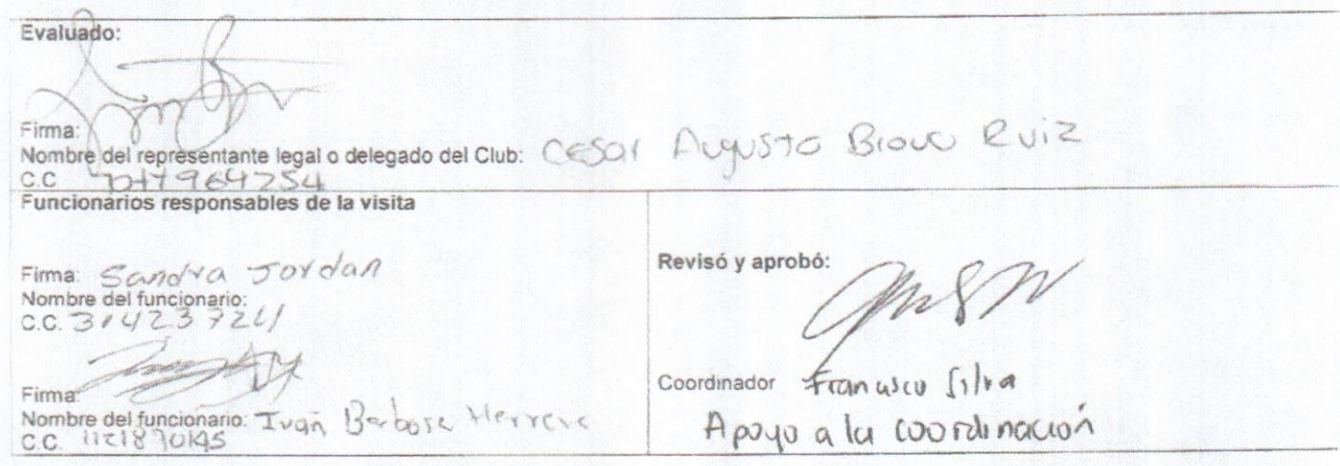 Evaluado:
Firma:
Nombre del representante legal o delegado del Club: Cesar Augusto Bravo Ruiz
C.C
Funcionarios responsables de la visita
Firma: Sandra Jordan
Nombre del funcionario:
C.C.
Firma:
Nombre del funcionario: Ivan Barbosa Herrera
C.C.
Revisó y aprobó:
Coordinador Francisco Silva
Apoyo a la coordinación